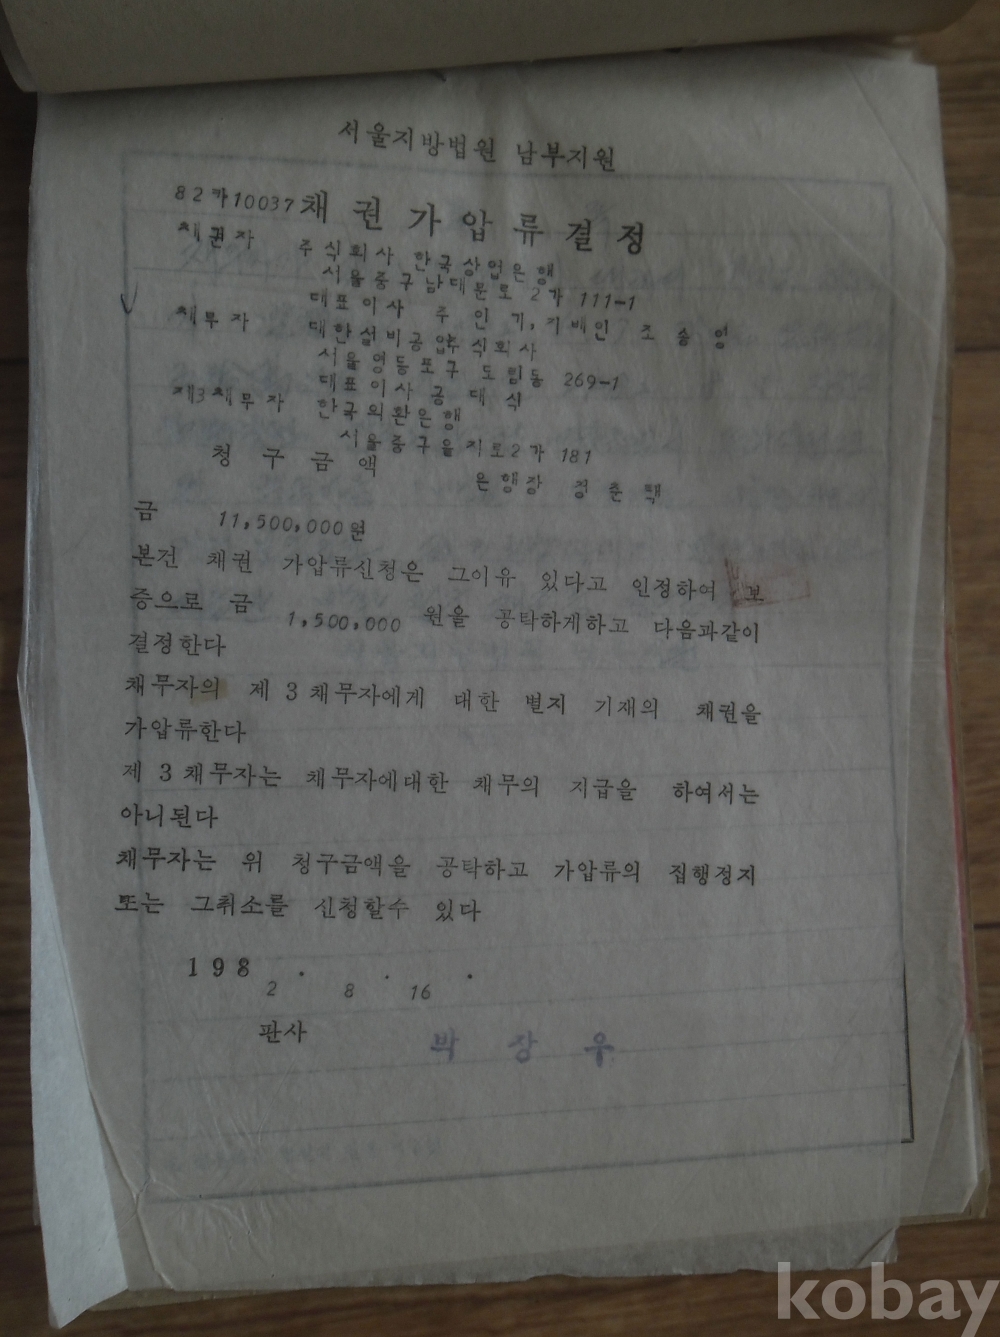 서울지방법원 남부지원
82카10037 채권가압류결정
채권자 주식회사 한국상업은행
서울중구남대문로2가 111-1
대표이사 주 인 기, 지배인 조 승 영
채무자 대한설비공업주식회사
서울영등포구 도림동 269-1
대표이사 공 대 식
제3채무자 한국외환은행
서울중구을지로2가 181
청 구 금 액
은행장 정 춘 택
금 11,500,000원
본건 채권 가압류신청은 그이유 있다고 인정하여 보
증으로 금 1,500,000 원을 공탁하게하고 다음과같이
결정한다
채무자의 제 3 채무자에게 대한 별지 기재의 채권을
가압류한다
제 3 채무자는 채무자에대한 채무의 지급을 하여서는
아니된다
채무자는 위 청구금액을 공탁하고 가압류의 집행정지
또는 그취소를 신청할수 있다
198 2 . 8 . 16 .
판사 박 장 우
kobay